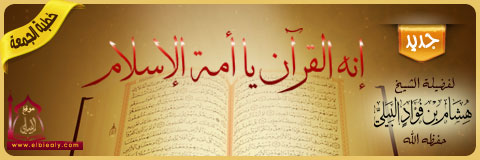 خطبة الجمعة
جديد
إنه القرآن يا أمة الإسلام
لفضيلة الشيخ
هشام بن فؤاد البيلي
حفظه الله
موقع
البيلي
www.elbiealy.com